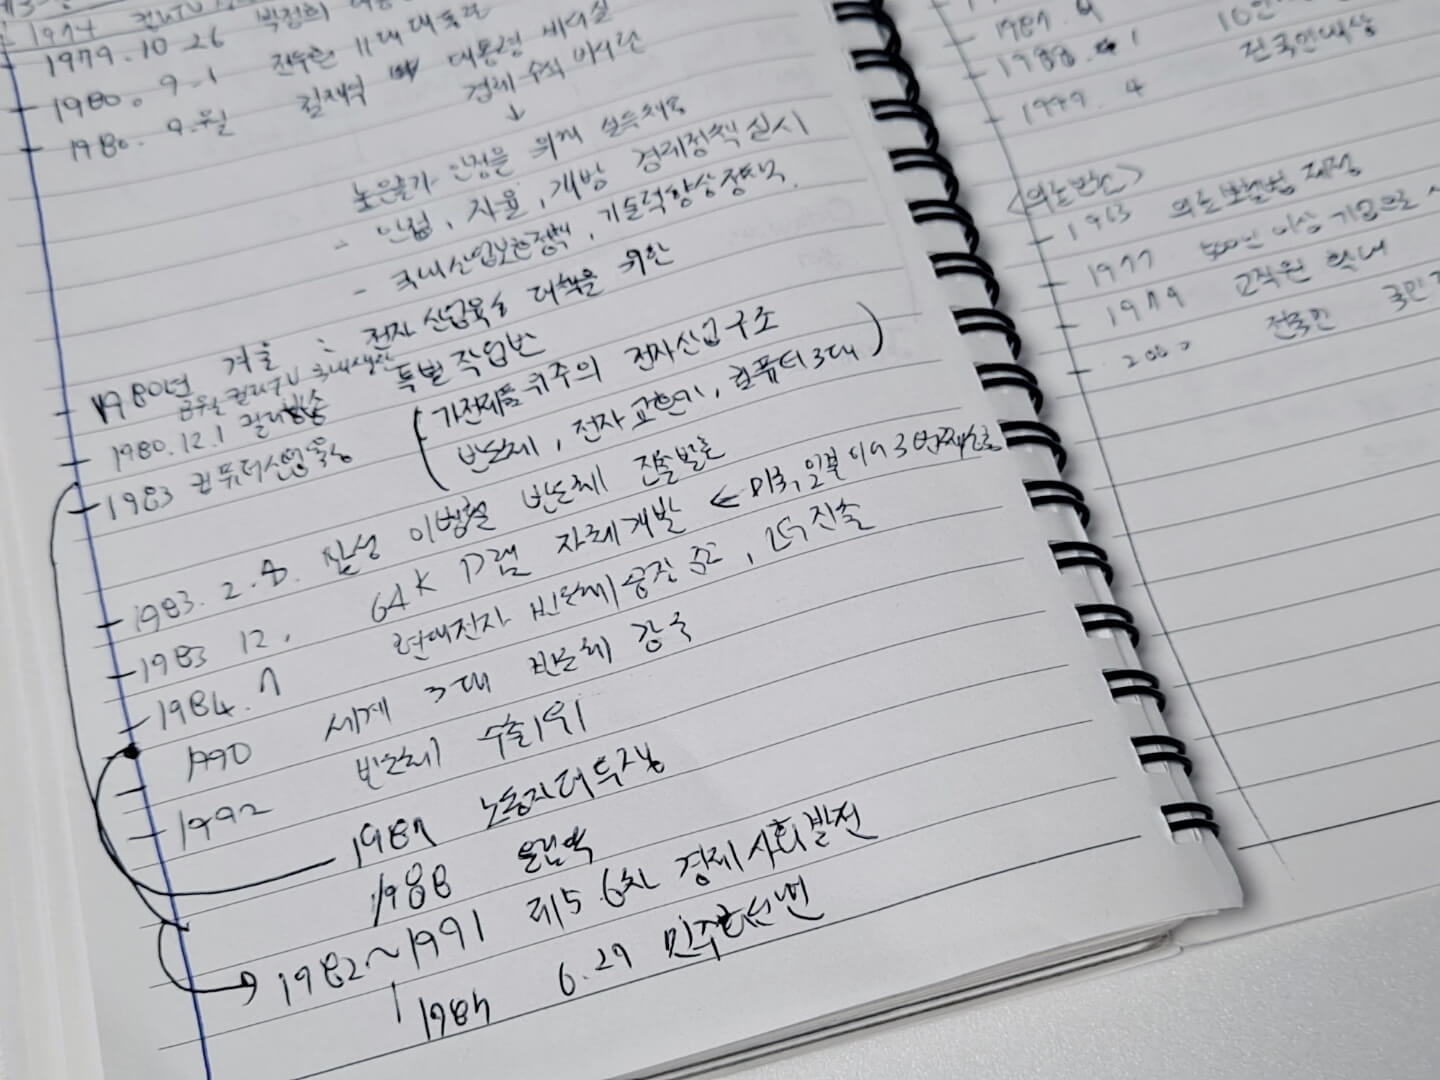 1974 컬러TV
1979. 10. 26 박정희
1980. 9. 1 전두환 11대 대통령
1980. 9.월 김재익 대통령 비서실
경제 수석
↓
높은물가 안정을 위해
- 안정, 자율, 개방 경제정책 실시
- 국내산업보호정책, 기술력향상정책.
1980년 겨울 : 전자산업육성 대책을 위한
특별 작업반
컬러TV 국내생산
1980. 12. 1 컬러방송
(가전제품 위주의 전자산업구조
반도체, 전자교환기, 컴퓨터 3대)
1983 컴퓨터산업육성
1983. 2. 8. 삼성 이병철 반도체 진출발표
1983 12. 64K D램 자체개발 ← 미국, 일본 이어 3번째으로
1984. 7 현대전자 반도체공장 준공, 진출
1990 세계 3대 반도체 강국
1992 반도체 수출1위
1987 노동자대투쟁
1988 올림픽
1982~1991 제5 6차 경제사회발전
1987 6.29 민주화선언
1987. 9
1988. 1
1989. 4 전국민대상
<의료보험>
- 1963 의료보험법 제정
- 1977 500인 이상 기업으로
- 1979 교직원 확대
- 2000 전국민 국민